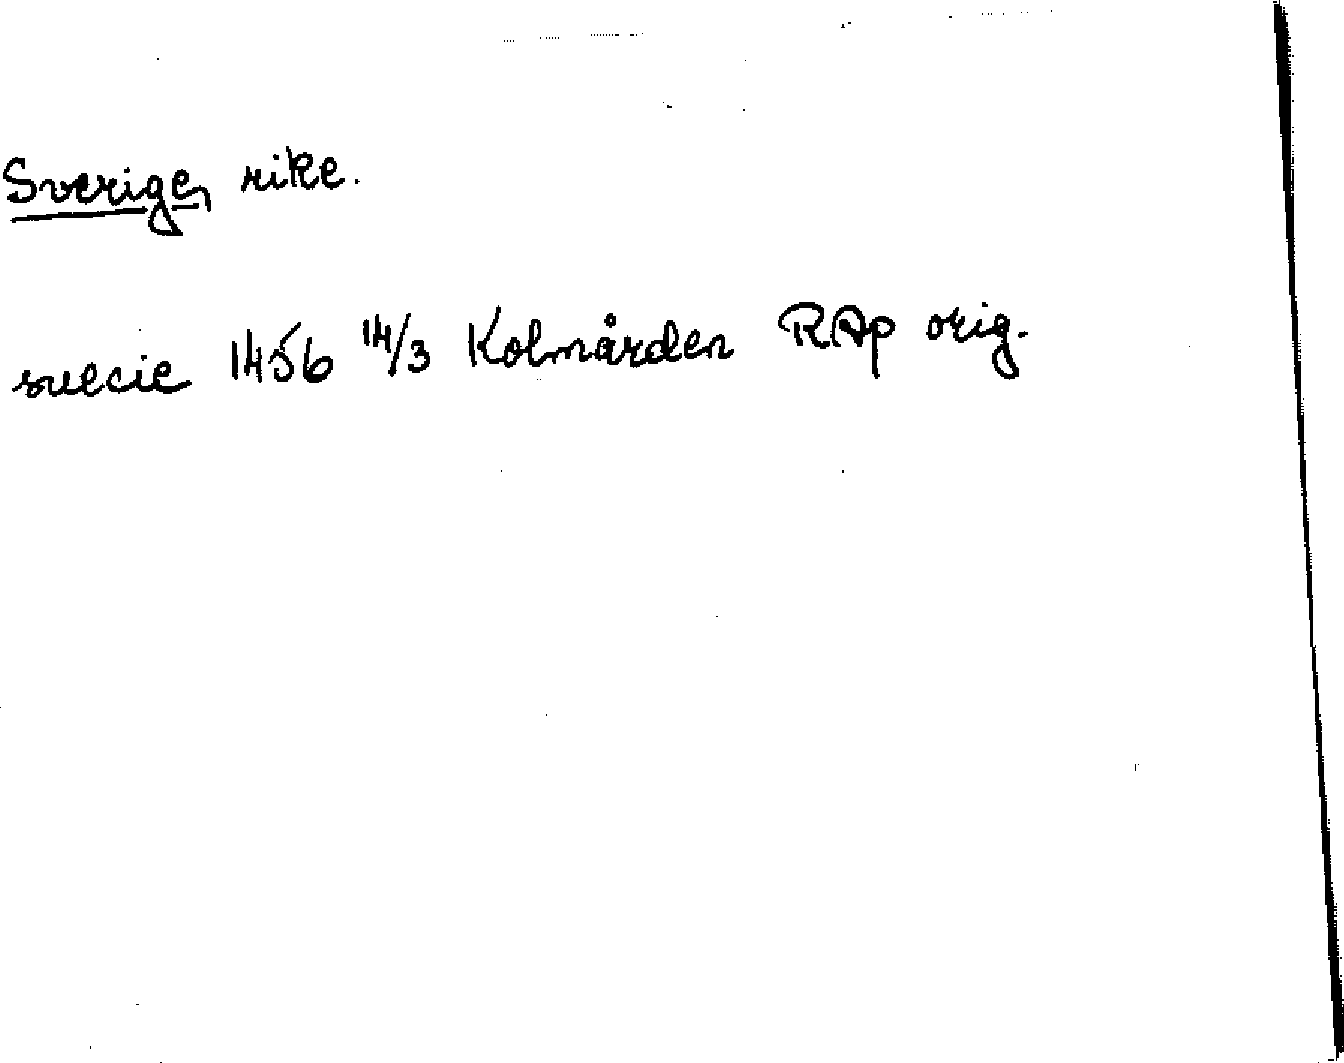 Sverige, rike.
suecie 1456 14/3 Kolmården RAp orig.